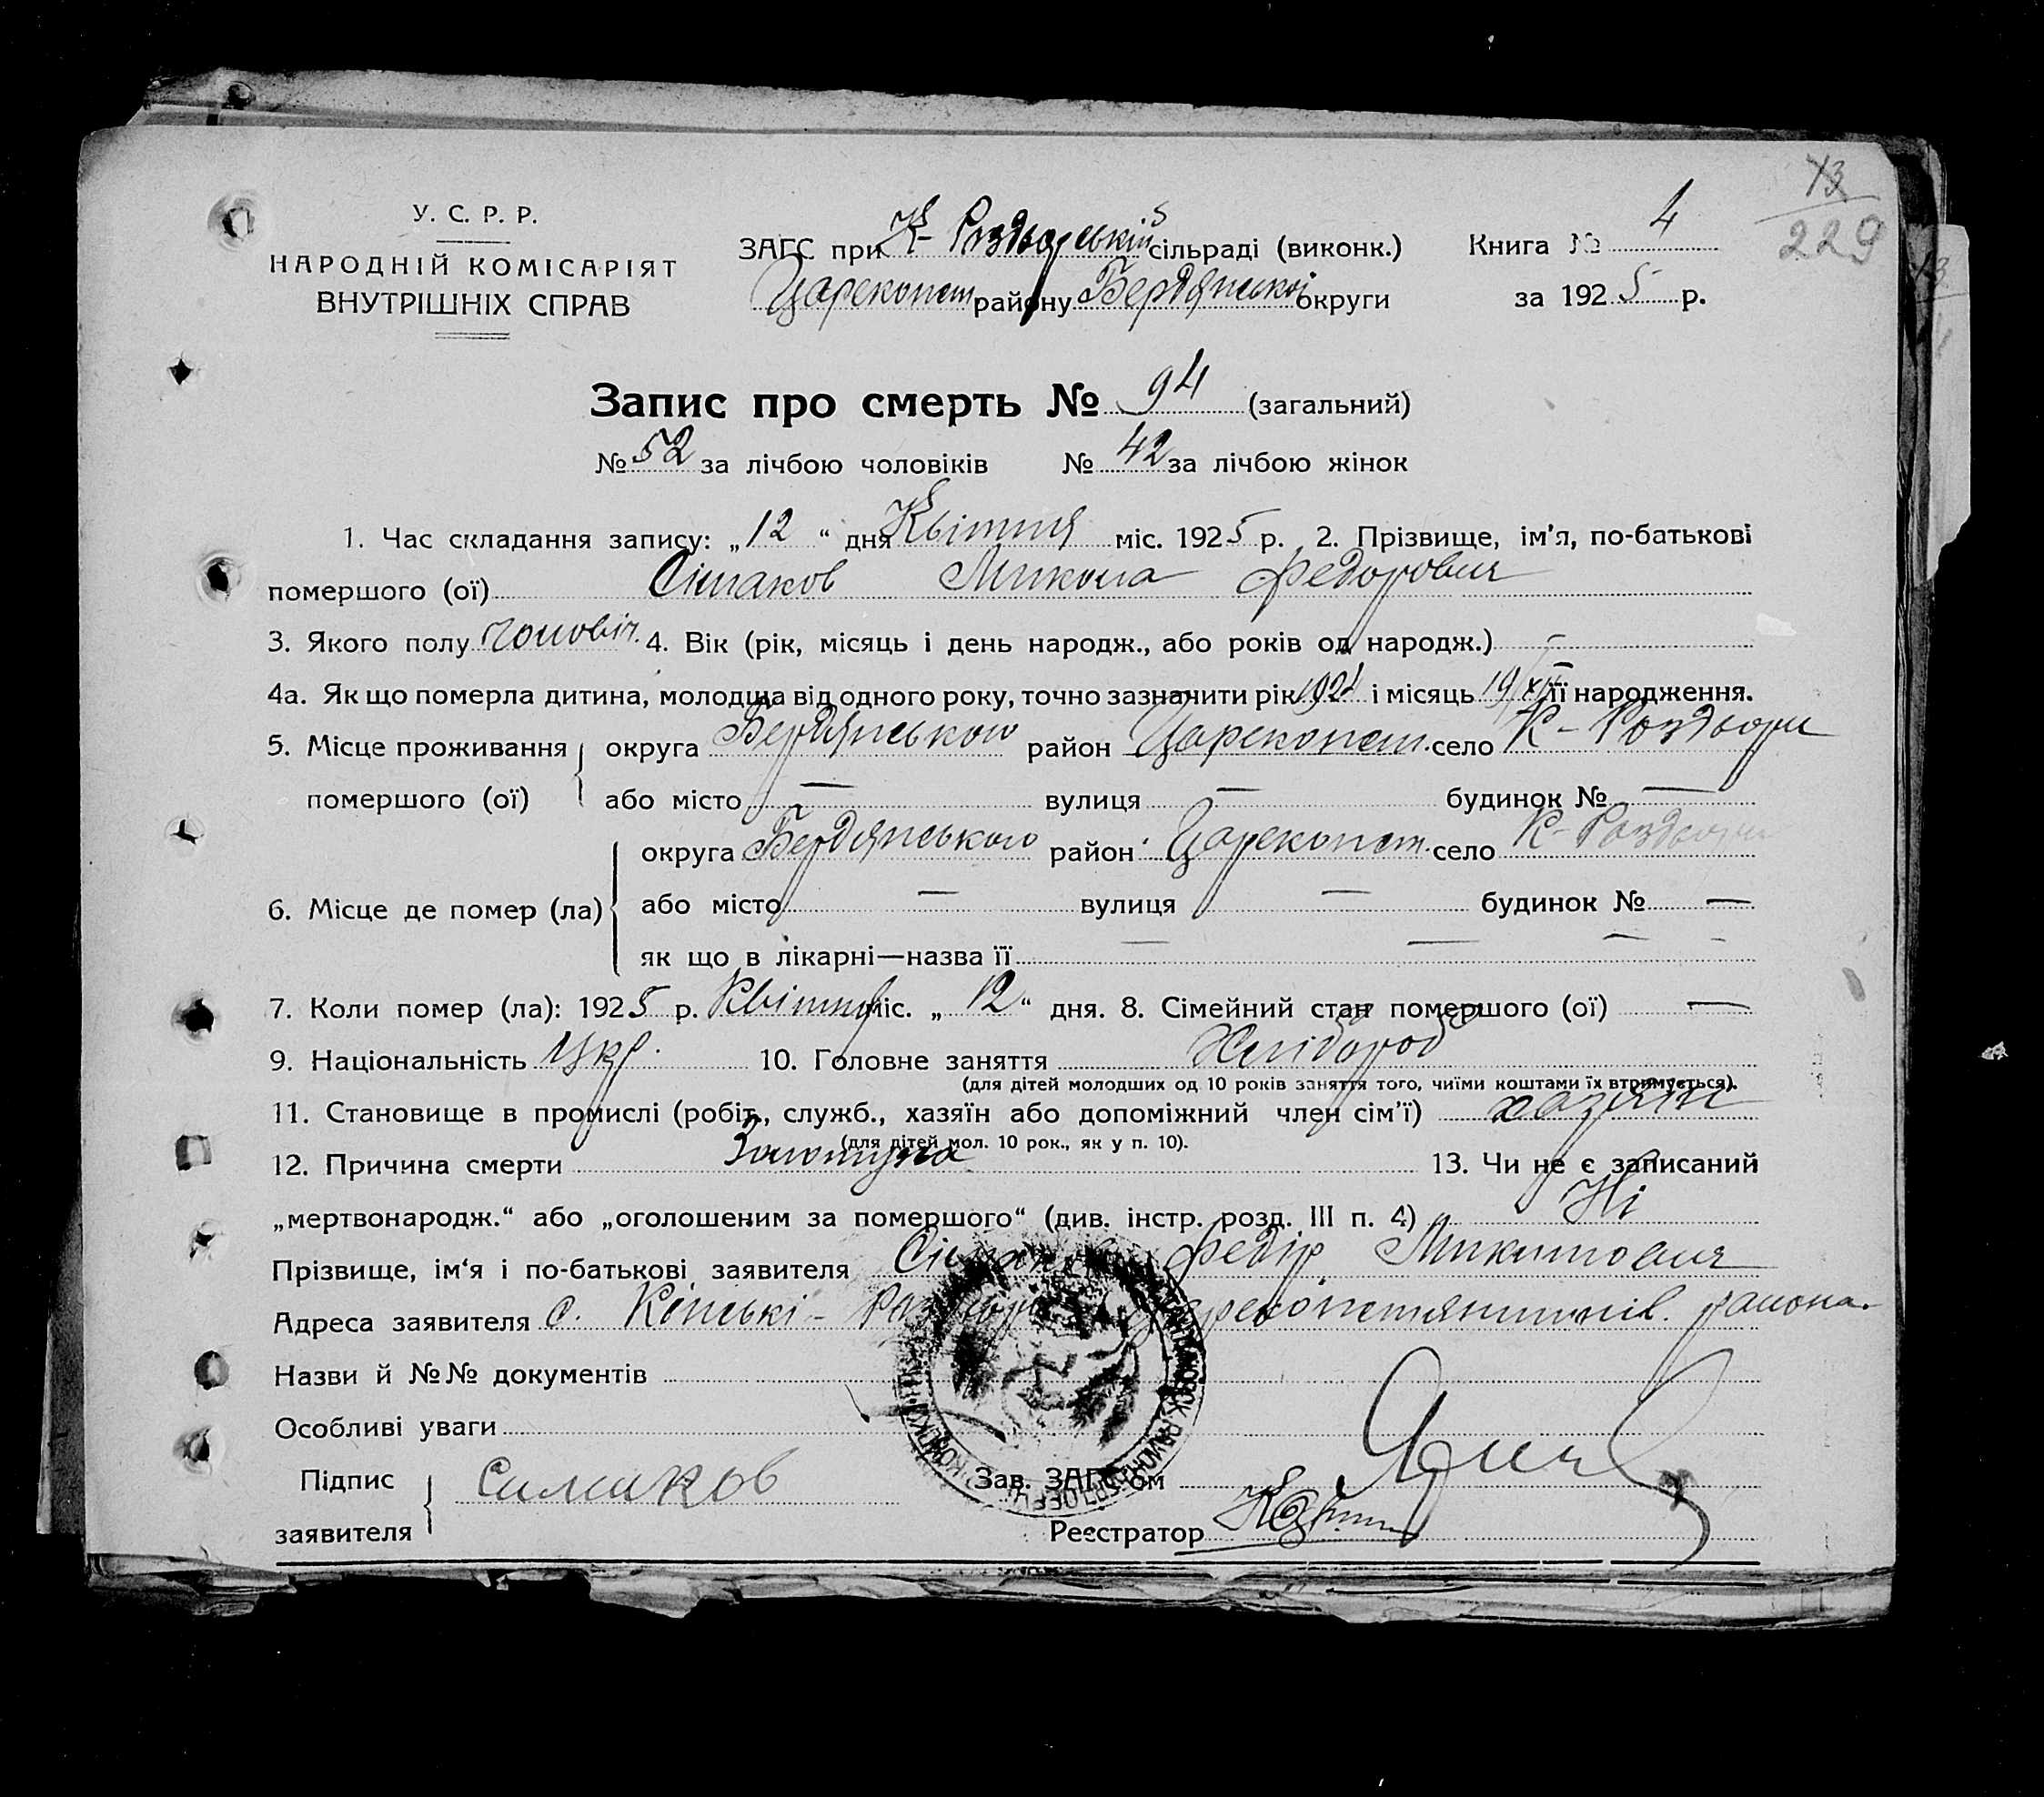 13
229
У. С. Р. Р.
НАРОДНІЙ КОМІСАРІЯТ
ВНУТРІШНІХ СПРАВ
ЗАГС при К-Роздорській сільраді (виконк.)
Цареконст району Бердянської округи
Книга № 4
за 1925 р.
Запис про смерть № 94 (загальний)
№ 52 за лічбою чоловіків № 42 за лічбою жінок
1. Час складання запису: „12“ дня Квітня міс. 1925 р. 2. Прізвище, ім'я, по-батькові
помершого (ої) Сімаков Микола Федорович
3. Якого полу чоловіч. 4. Вік (рік, місяць і день народж., або років од народж.) —
4а. Як що померла дитина, молодша від одного року, точно зазначити рік 1924 і місяць 19/XII її народження.
5. Місце проживання округа Бердянського район Цареконст. село К-Роздори
помершого (ої) або місто — вулиця — будинок № —
округа Бердянського район Цареконст. село К-Роздори
6. Місце де помер (ла) або місто — вулиця — будинок № —
як що в лікарні—назва її — — — -
7. Коли помер (ла): 1925 р. Квітня міс. „12“ дня. 8. Сімейний стан помершого (ої) —
9. Національність Укр. 10. Головне заняття Хлібороб
(для дітей молодших од 10 років заняття того, чиїми коштами їх втримується).
11. Становище в промислі (робіт., служб., хазяїн або допоміжний член сім'ї) хазяїн
(для дітей мол. 10 рок., як у п. 10).
12. Причина смерти Золотуха 13. Чи не є записаний
„мертвонародж.“ або „оголошеним за помершого“ (див. інстр. розд. III п. 4) Ні
Прізвище, ім'я і по-батькові заявителя Сімаков Федір Микитович
Адреса заявителя с. Кінські-Роздори Цареконстянтинів. района.
Назви й №№ документів
Особливі уваги
Підпис заявителя Симаков
Зав. ЗАГС'ом
Реєстратор